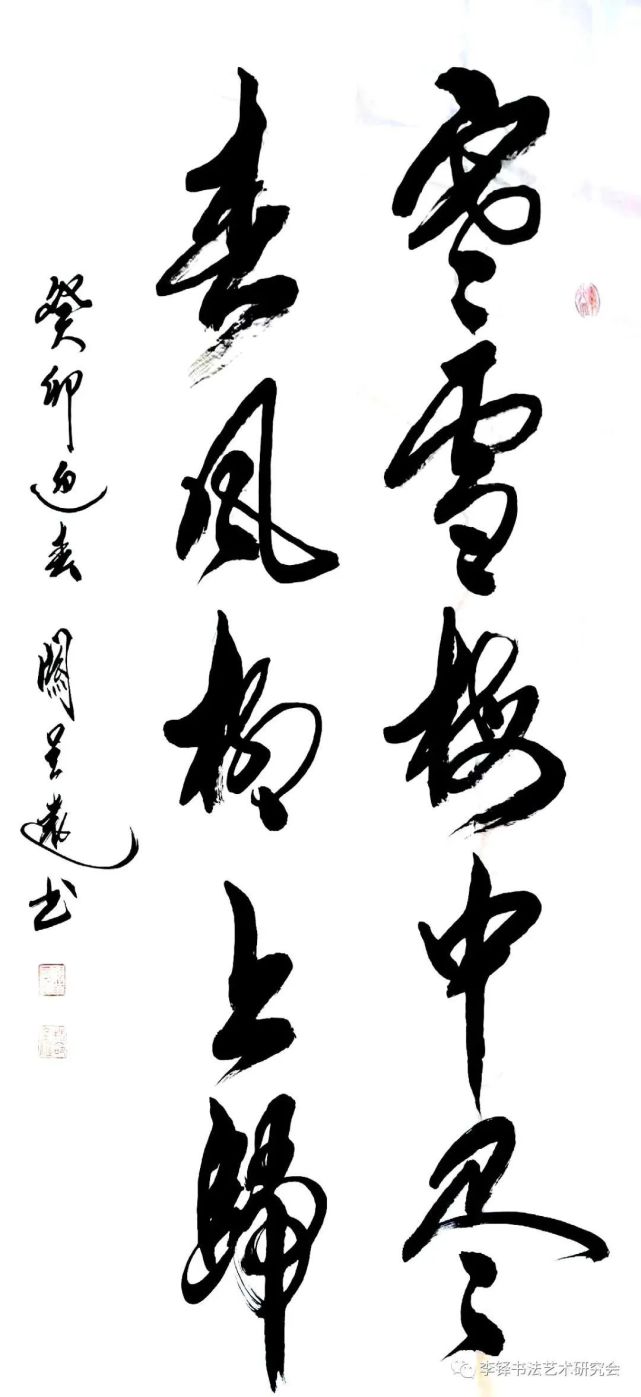 寒雪梅中尽
春风柳上歸
癸卯迎春 闗呈遠书
李铎书法艺术研究会